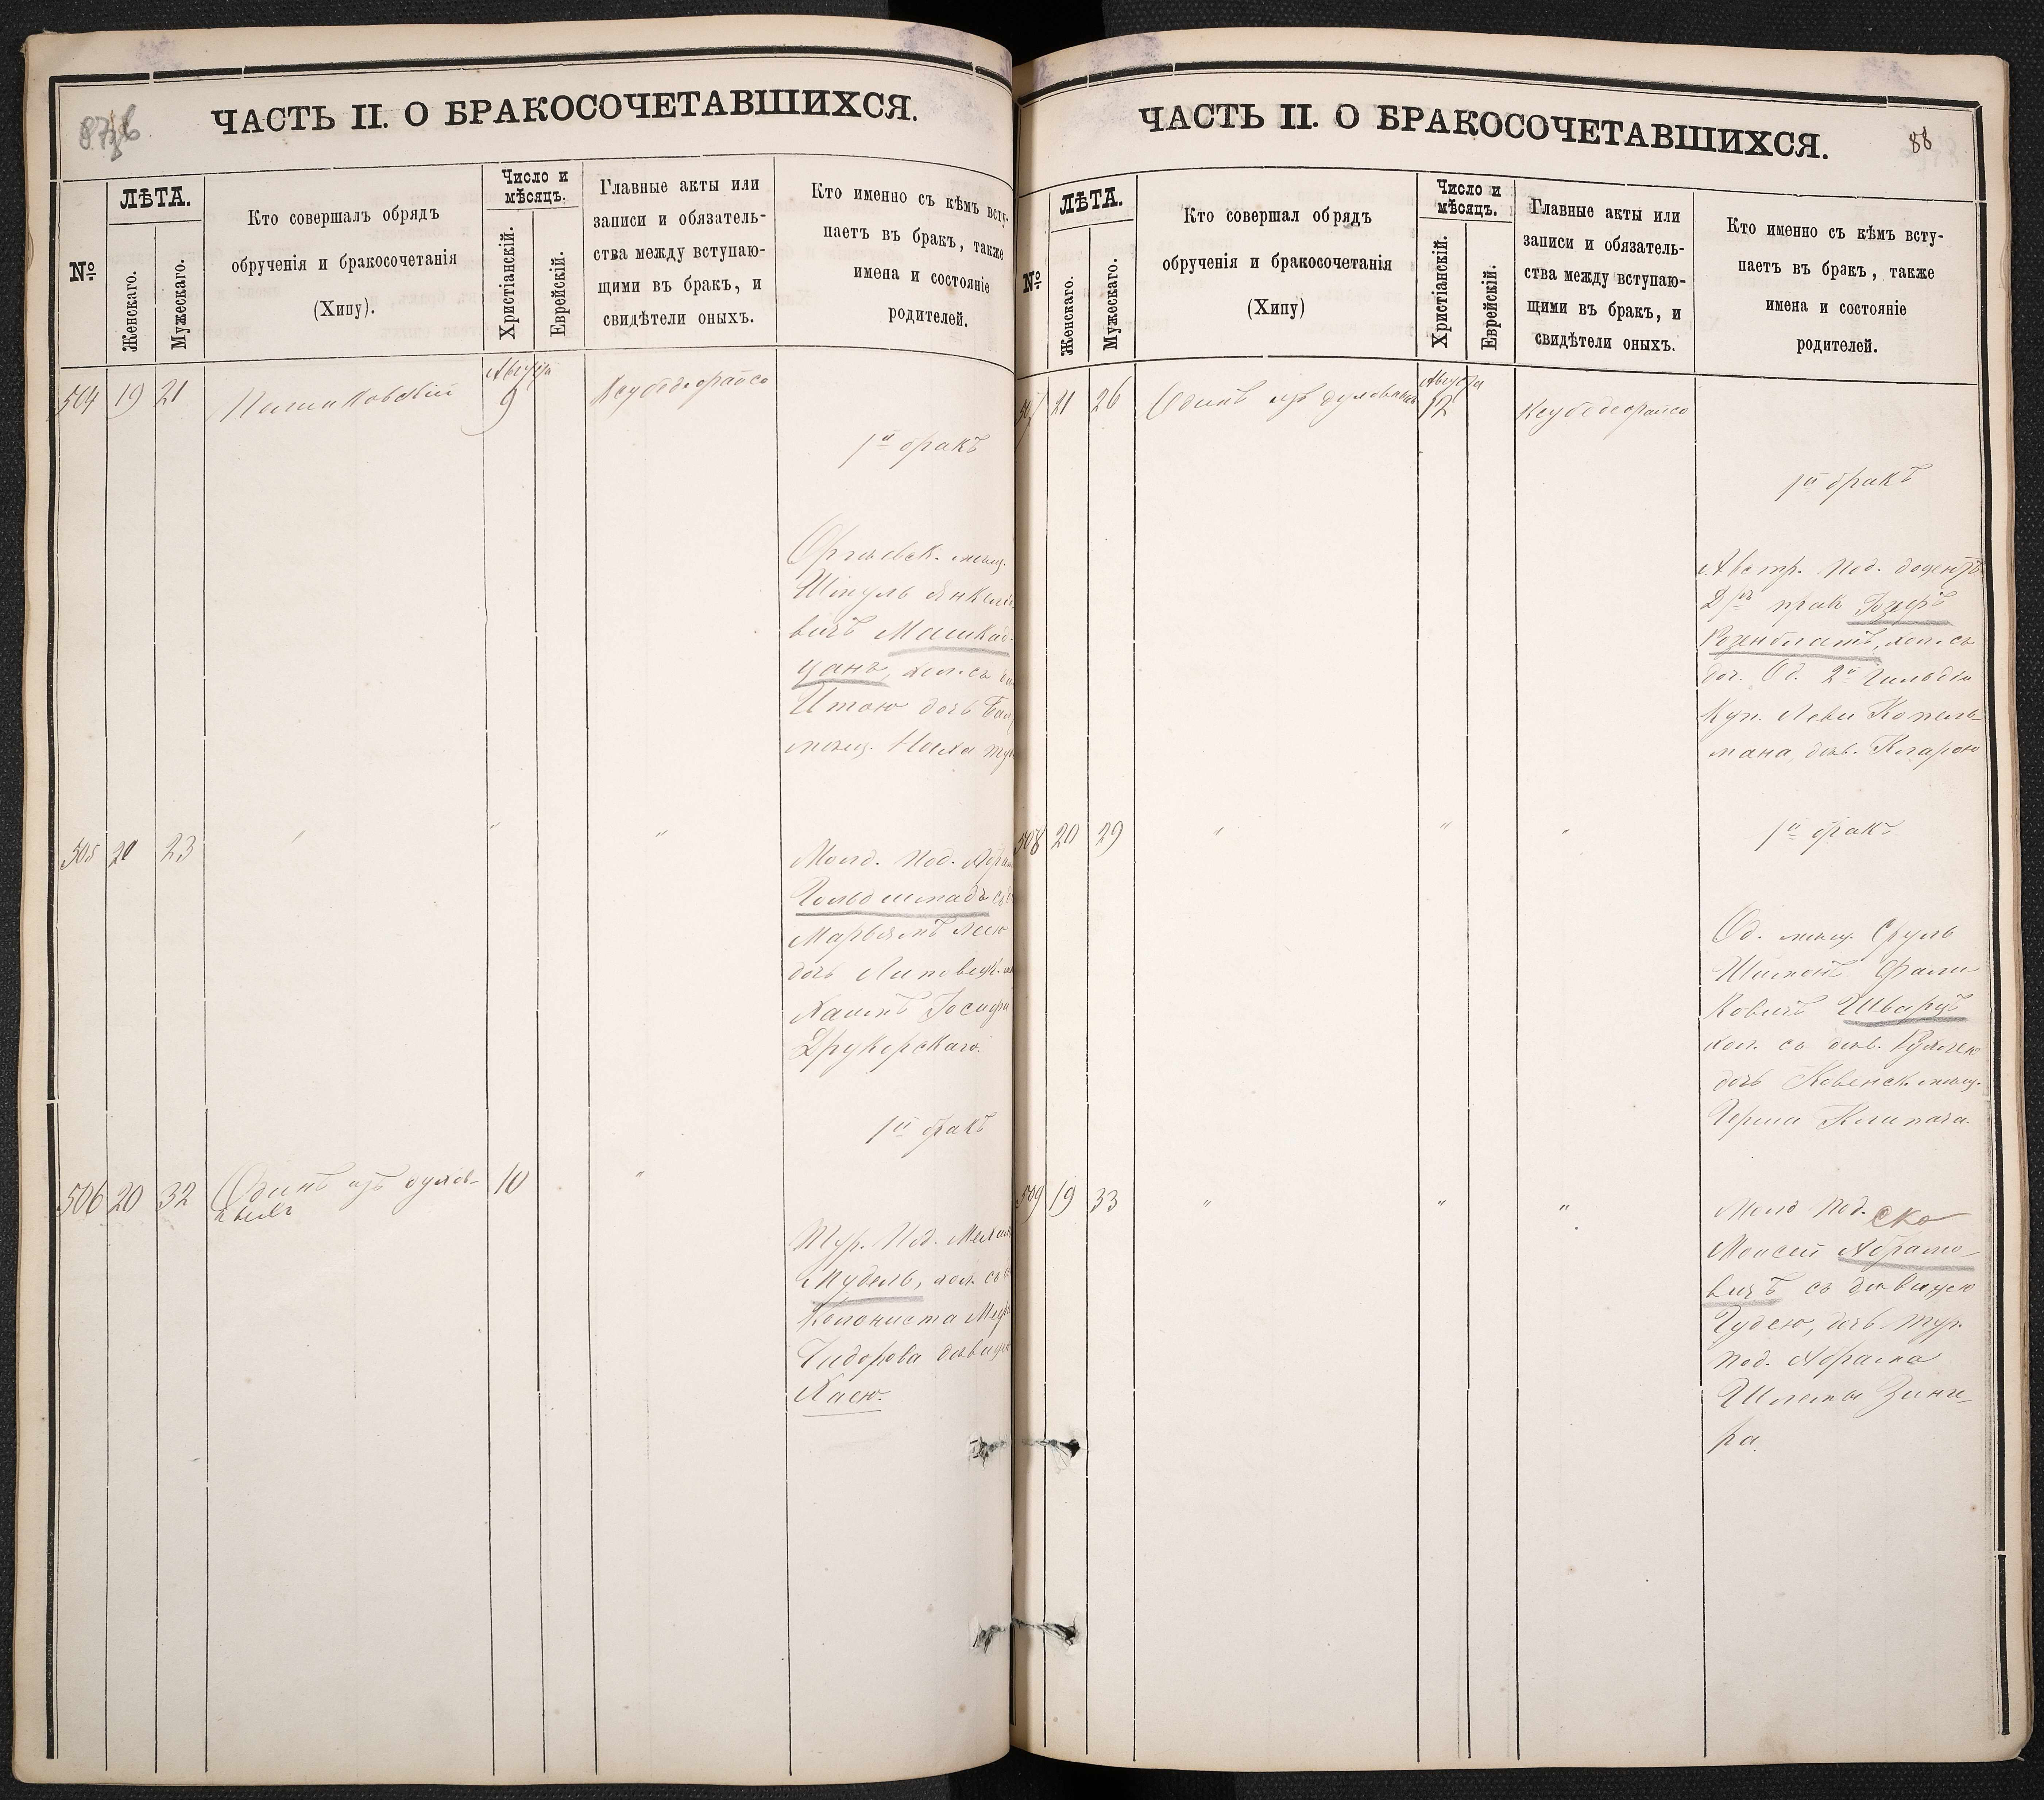 ЧАСТЬ II. О БРАКОСОЧЕТАВШИХСЯ.
№
ЛѢТА.
Женскаго.
Мужескаго.
Кто совершалъ обрядъ
обрученія и бракосочетанія
(Хипу).
Число и
мѣсяцъ.
Христіанскій.
Еврейскій.
Главные акты или
записи и обязатель-
ства между вступаю-
щими въ бракъ, и
свидѣтели оныхъ.
Кто именно съ кѣмъ всту-
паетъ въ бракъ, также
имена и состояніе
родителей.
504 19 21
Августа
9
1й бракъ
Оргѣевск. мѣщ.
вичъ Машкау-
цанъ, хол. съ
Итою дочь
мѣщ.
505 20 23 " " "
Молд. Под.
Гольдшмидъ
Марьямъ Лею
дочь Липовецк.
Хаимъ Іосифа
Друкерскаго.
1й бракъ
506 20 32 Одинъ изъ духов-
ныхъ
10 "
Тур. Под.
Нудель, хол. съ
Колониста
Сидорова дѣвицею
Хаею.
ЧАСТЬ II. О БРАКОСОЧЕТАВШИХСЯ.
88
№
ЛѢТА.
Женскаго.
Мужескаго.
Кто совершал обрядъ
обрученія и бракосочетанія
(Хипу)
Число и
мѣсяцъ.
Христіанскій.
Еврейскій.
Главные акты или
записи и обязатель-
ства между вступаю-
щими въ бракъ, и
свидѣтели оныхъ.
Кто именно съ кѣмъ всту-
паетъ въ бракъ, также
имена и состояніе
родителей.
507 21 26 Одинъ изъ духовныхъ
Августа
12
1й бракъ
Австр. Под. доцентъ
Д-ръ правъ Іозефъ
Розенблатъ, хол. съ
доч. Од. 2й Гильдіи
Куп. Леви Копель-
мана, дѣв. Кларою
508 20 29 " " "
1й бракъ
Од. мѣщ. Сруль
Шимонъ Фали-
ковичъ Шварцъ
хол. съ дѣв. Рухлею
дочь Ковенск. мѣщ.
Герша Клипача.
509 19 33 " " "
Молд Под. ско
Моисей Абрамо-
вичъ съ дѣвицею
дочь Тур.
Под. Абрама
Шлемы Зинге-
ра.